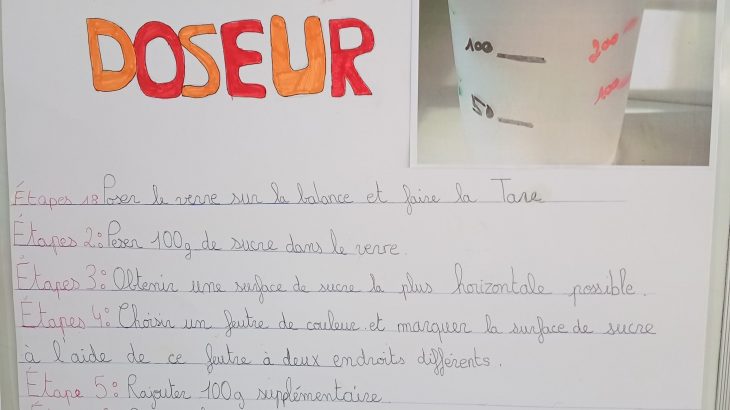 DOSEUR
100
200
50
100
Étapes 1: Poser le verre sur la balance et faire la Tare
Étapes 2: Peser 100g de sucre dans le verre.
Étapes 3: Obtenir une surface de sucre la plus horizontale possible.
Étapes 4: Choisir un feutre de couleur et marquer la surface de sucre
à l'aide de ce feutre à deux endroits différents.
Étape 5: Rajouter 100g supplémentaire.